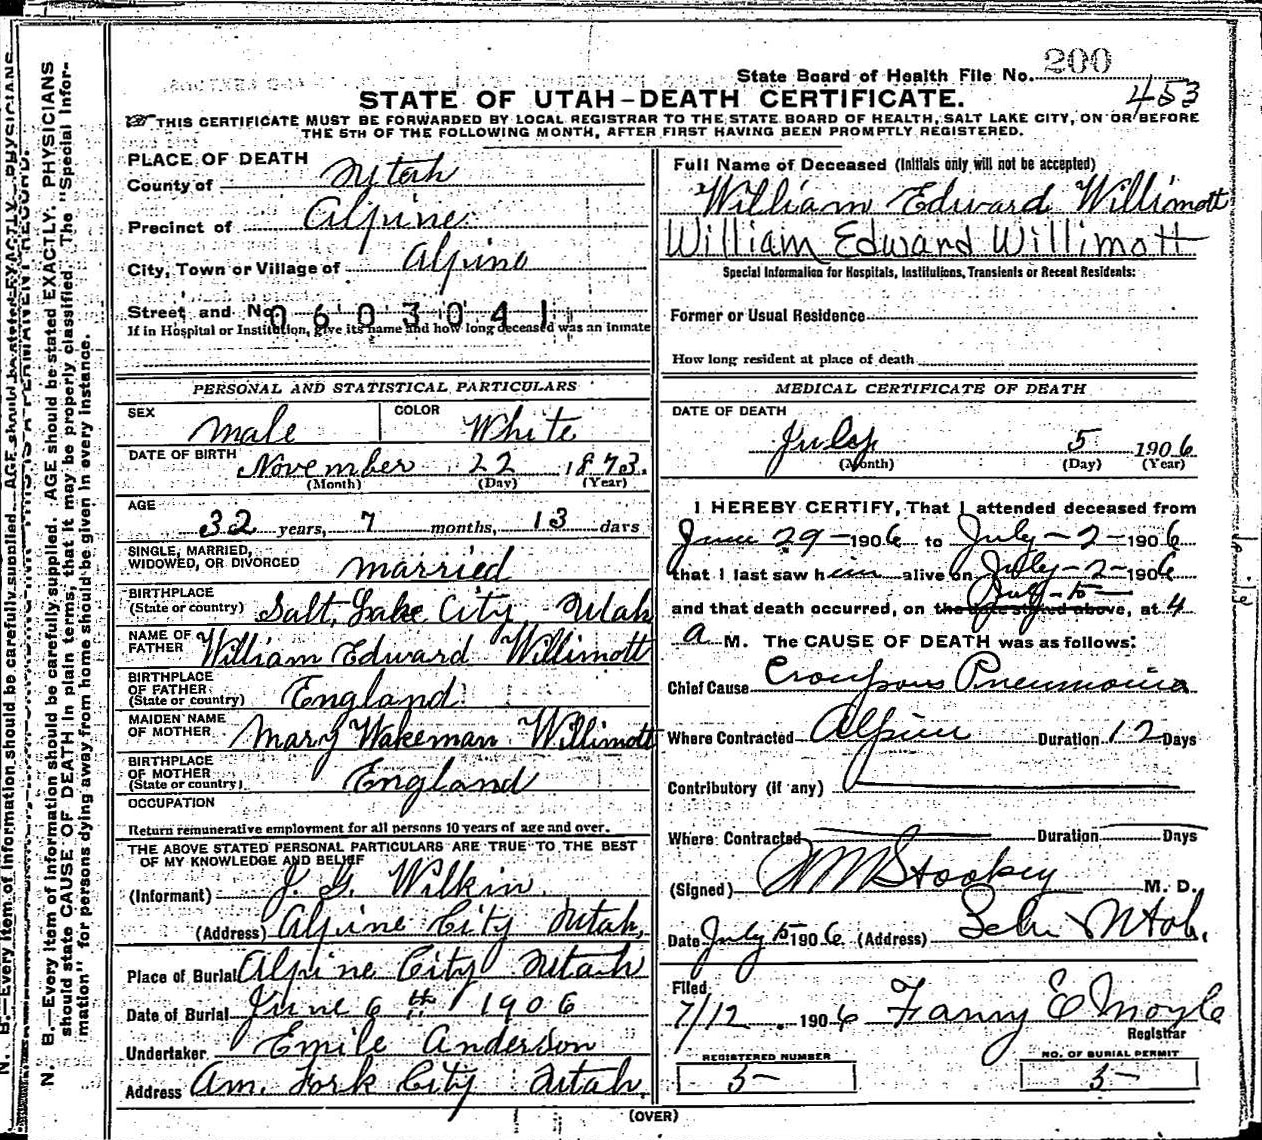 State Board of Health File No. 200
453
STATE OF UTAH-DEATH CERTIFICATE.
THIS CERTIFICATE MUST BE FORWARDED BY LOCAL REGISTRAR TO THE STATE BOARD OF HEALTH, SALT LAKE CITY, ON OR BEFORE
THE 5TH OF THE FOLLOWING MONTH, AFTER FIRST HAVING BEEN PROMPTLY REGISTERED.
PLACE OF DEATH
County of Utah
Precinct of Alpine
City, Town or Village of Alpine
Street and No. 0603041
If in Hospital or Institution, give its name and how long deceased was an inmate
PERSONAL AND STATISTICAL PARTICULARS
SEX Male COLOR White
DATE OF BIRTH November 22 1873.
(Month) (Day) (Year)
AGE
32 years, 7 months, 13 days
SINGLE, MARRIED,
WIDOWED, OR DIVORCED married
BIRTHPLACE
(State or country) Salt Lake City Utah
NAME OF
FATHER William Edward Willimott
BIRTHPLACE
OF FATHER
(State or country) England
MAIDEN NAME
OF MOTHER Mary Wakeman Willimott
BIRTHPLACE
OF MOTHER
(State or country) England
OCCUPATION
Return remunerative employment for all persons 10 years of age and over.
THE ABOVE STATED PERSONAL PARTICULARS ARE TRUE TO THE BEST
OF MY KNOWLEDGE AND BELIEF
(Informant) J. G. Wilkin
(Address) Alpine City Utah,
Place of Burial Alpine City Utah
Date of Burial June 6th 1906
Undertaker Emile Anderson
Address Am. Fork City Utah.
Full Name of Deceased (Initials only will not be accepted)
William Edward Willimott
William Edward Willimott
Special Information for Hospitals, Institutions, Transients or Recent Residents:
Former or Usual Residence
How long resident at place of death
MEDICAL CERTIFICATE OF DEATH
DATE OF DEATH
July 5 1906
(Month) (Day) (Year)
I HEREBY CERTIFY, That I attended deceased from
June 29-1906 to July-2-1906
that I last saw him alive on July-2-1906
July-5-
and that death occurred, on the date stated above, at 4
a M. The CAUSE OF DEATH was as follows:
Chief Cause Croupous Pneumonia
Where Contracted Alpine Duration 12 Days
Contributory (if any)
Where Contracted Duration Days
(Signed) Stookey M. D.
Date July 5 1906 (Address) Lehi Utah.
Filed
7/12 1906 Fanny E Moyle
Registrar
REGISTERED NUMBER
5-
NO. OF BURIAL PERMIT
5-
(OVER)
N. B.—Every item of information should be carefully supplied. AGE should be stated EXACTLY. PHYSICIANS
should state CAUSE OF DEATH in plain terms, that it may be properly classified. The "Special Infor-
mation" for persons dying away from home should be given in every instance.